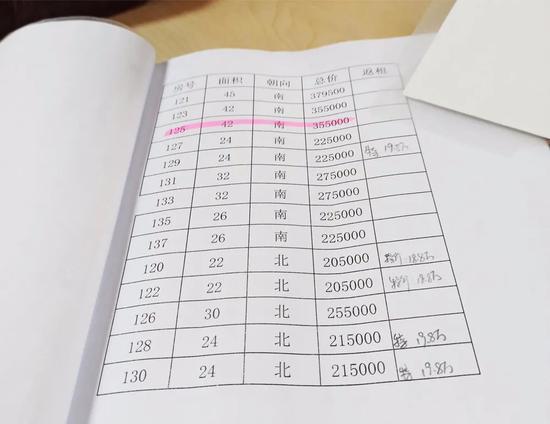 房号 面积 朝向 总价 返租
121 45 南 379500
123 42 南 355000
125 42 南 355000
127 24 南 225000
129 24 南 225000 特 19.8万
131 32 南 275000
133 32 南 275000
135 26 南 225000
137 26 南 225000
120 22 北 205000 18.8万
122 22 北 205000 18.8万
126 30 北 255000
128 24 北 215000 特 19.8万
130 24 北 215000 特 19.8万